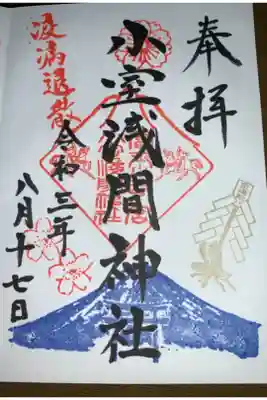 奉拝
小室浅間神社
令和三年
八月十七日
疫病退散